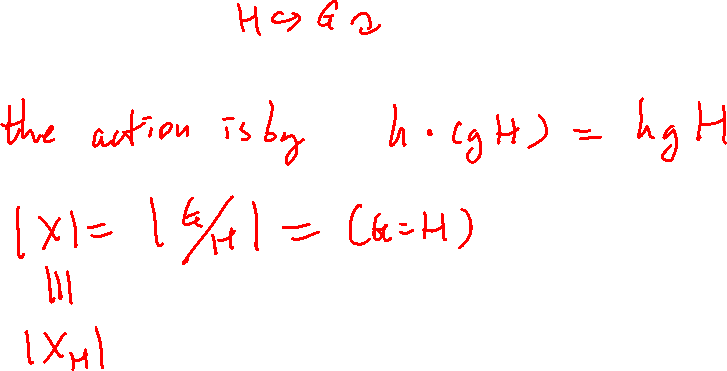 H ↪ G ↷
the action is by h · (gH) = hgH
|X| = |G/H| = (G:H)
|||
|X_H|